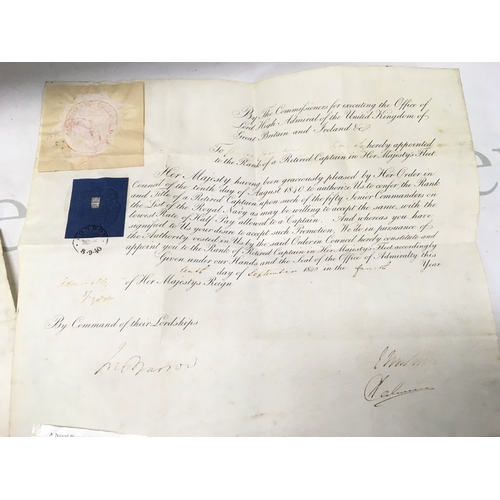 By The Commissioners for executing the Office of
Lord High Admiral of the United Kingdom of
Great Britain and Ireland &c
To hereby appointed
to the Rank of a Retired Captain in Her Majesty's Fleet.
Her Majesty having been graciously pleased by Her Order in
Council of the tenth day of August 1840 to authorize Us to confer the Rank
and Title of a Retired Captain upon such of the fifty Senior Commanders on
the List of the Royal Navy as may be willing to accept the same, with the
lowest Rate of Half Pay allowed to a Captain. And whereas you have
signified to Us your desire to accept such Promotion, We do in pursuance of
the Authority vested in Us by the said Order in Council hereby constitute and
appoint you to the Rank of Retired Captain in Her Majesty's Fleet accordingly
Given under our Hands and the Seal of the Office of Admiralty this
tenth day of September 1840 in the fourth Year
of Her Majesty's Reign.
By Command of their Lordships